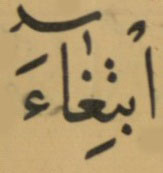 ابْتِغَآءَ